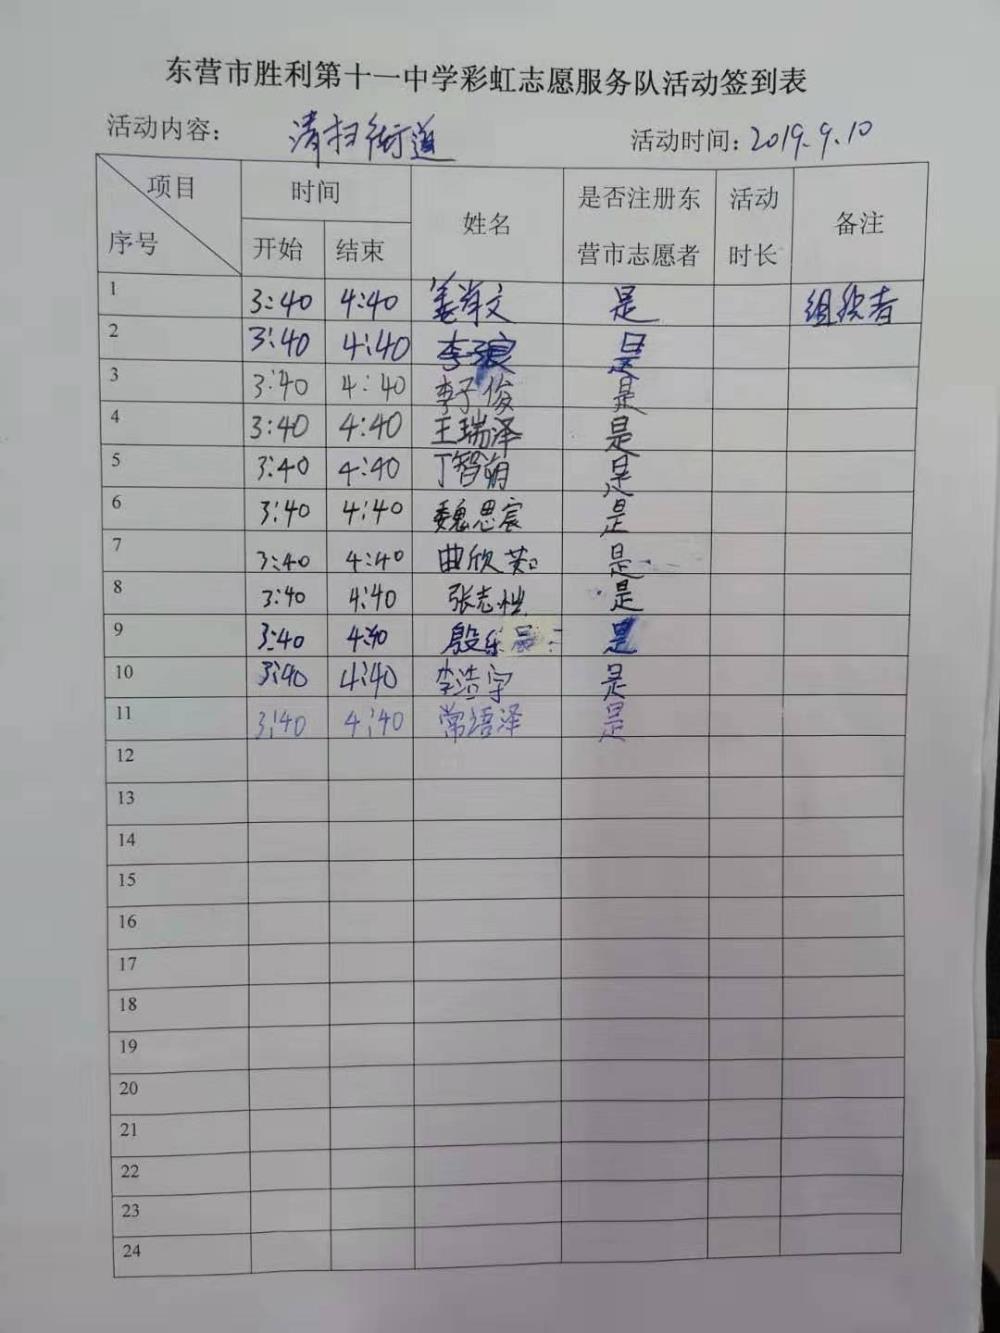 东营市胜利第十一中学彩虹志愿服务队活动签到表
活动内容： 清扫街道 活动时间：2019.9.10
项目 序号 时间 姓名 是否注册东营市志愿者 活动时长 备注
开始 结束
1 3:40 4:40 姜肖文 是 组织者
2 3:40 4:40 李 是
3 3:40 4:40 李子俊 是
4 3:40 4:40 王瑞泽 是
5 3:40 4:40 丁智 是
6 3:40 4:40 魏思宸 是
7 3:40 4:40 曲欣茹 是
8 3:40 4:40 张志恺 是
9 3:40 4:40 殷乐 是
10 3:40 4:40 李浩宇 是
11 3:40 4:40 常语泽 是
12
13
14
15
16
17
18
19
20
21
22
23
24